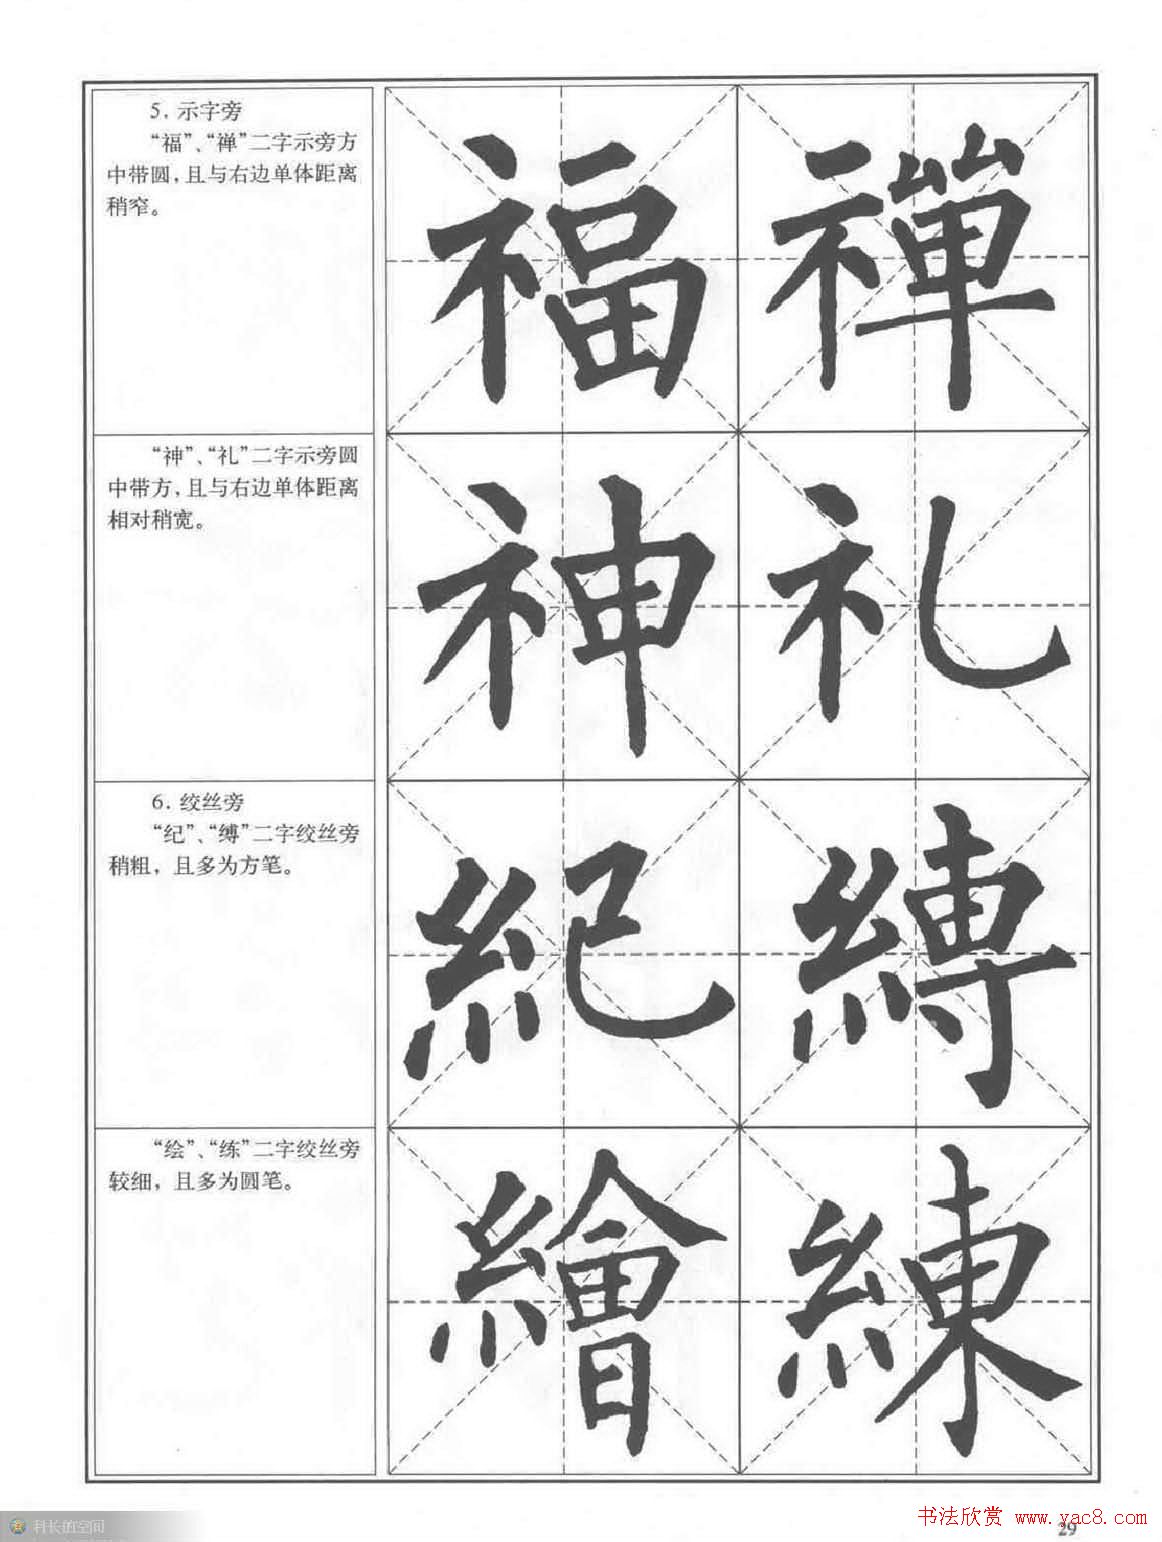 5. 示字旁
“福”、“禅”二字示旁方
中带圆，且与右边单体距离
稍窄。
福禪
“神”、“礼”二字示旁圆
中带方，且与右边单体距离
相对稍宽。
神礼
6. 绞丝旁
“纪”、“缚”二字绞丝旁
稍粗，且多为方笔。
紀縛
“绘”、“练”二字绞丝旁
较细，且多为圆笔。
繪練
科长的空间
书法欣赏 www.yac8.com
29